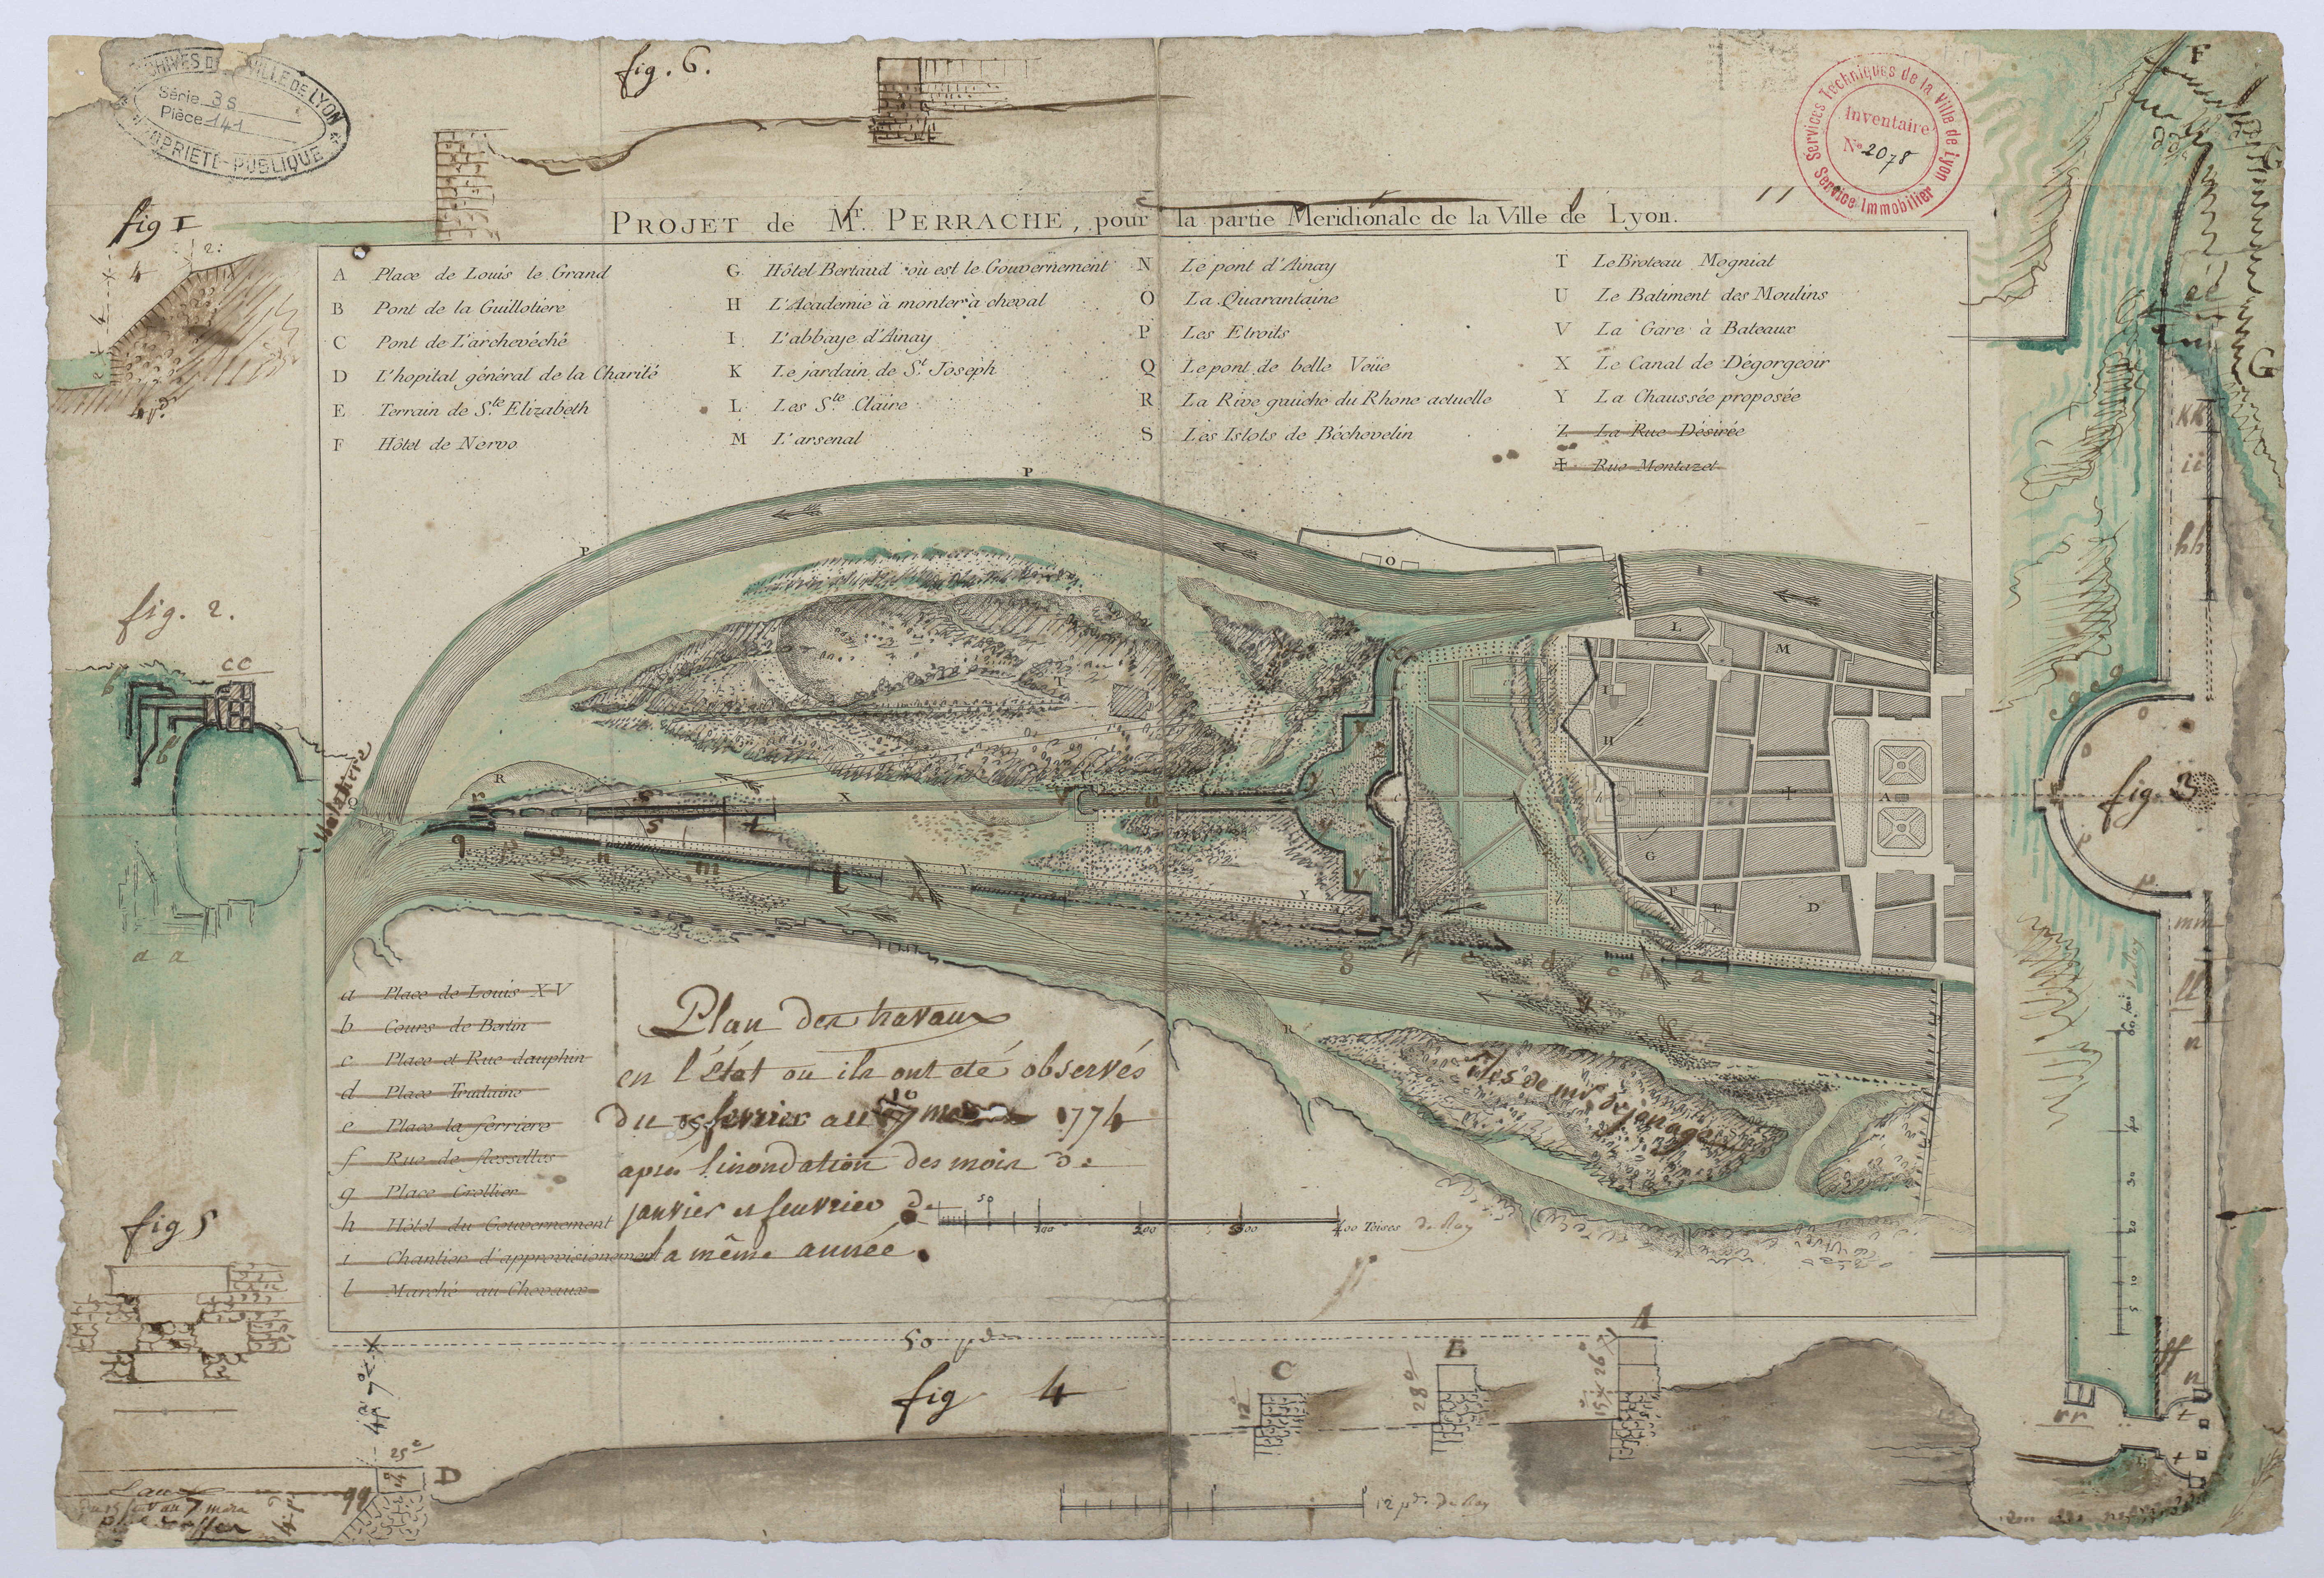 ARCHIVES DE LA VILLE DE LYON
Série 3S
Pièce 141
PROPRIETE PUBLIQUE
fig. 6.
Services Techniques de la Ville de Lyon
Inventaire
No 2078
Service Immobilier
fig I
PROJET de Mr. PERRACHE, pour la partie Meridionale de la Ville de Lyon.
A Place de Louis le Grand
B Pont de la Guillotiere
C Pont de L'archevéché
D L'hopital général de la Charité
E Terrain de Ste. Elizabeth
F Hôtel de Nervo
G Hôtel Bertaud où est le Gouvernement
H L'Academie à monter à cheval
I L'abbaye d'Ainay
K Le jardain de St. Joseph
L Les Ste. Claire
M L'arsenal
N Le pont d'Ainay
O La Quarantaine
P Les Etroits
Q Le pont de belle Veüe
R La Rive gauche du Rhone actuelle
S Les Islots de Béchevelin
T Le Broteau Mogniat
U Le Batiment des Moulins
V La Gare à Bateaux
X Le Canal de Dégorgeoir
Y La Chaussée proposée
Z La Rue Désirée
✝ Rue Montazet
fig. 2.
cc
a a
fig. 3
Mulatiere
a Place de Louis XV
b Cours de Bertin
c Place et Rue dauphin
d Place Trudaine
e Place la ferriere
f Rue de flesselles
g Place Crollier
h Hôtel du Gouvernement
i Chantier d'approvisionement
l Marché au Chevaux
Plan des travaux
en l'état ou ils ont eté observés
du 15 fevrier au 7 mars 1774
après l'inondation des mois de
janvier et feuvrier de
la même année.
50 100 200 300 400 Toises de Roy
isles de mr de
kk
ii
hh
mm
ll
rr
fig 5
50 pds
fig 4
A
B
C
D
12 pds. du Roy
L'eau